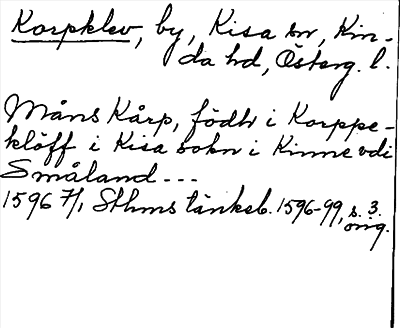 Korpklev, by, Kisa sn, Kin-
da hd, Österg. l.
Måns Kårp, födh i Korppe-
klöff i Kisa sokn i Kinne vdi
Småland ---
1596 7/1, Sthms tänkeb. 1596-99, s. 3.
orig.